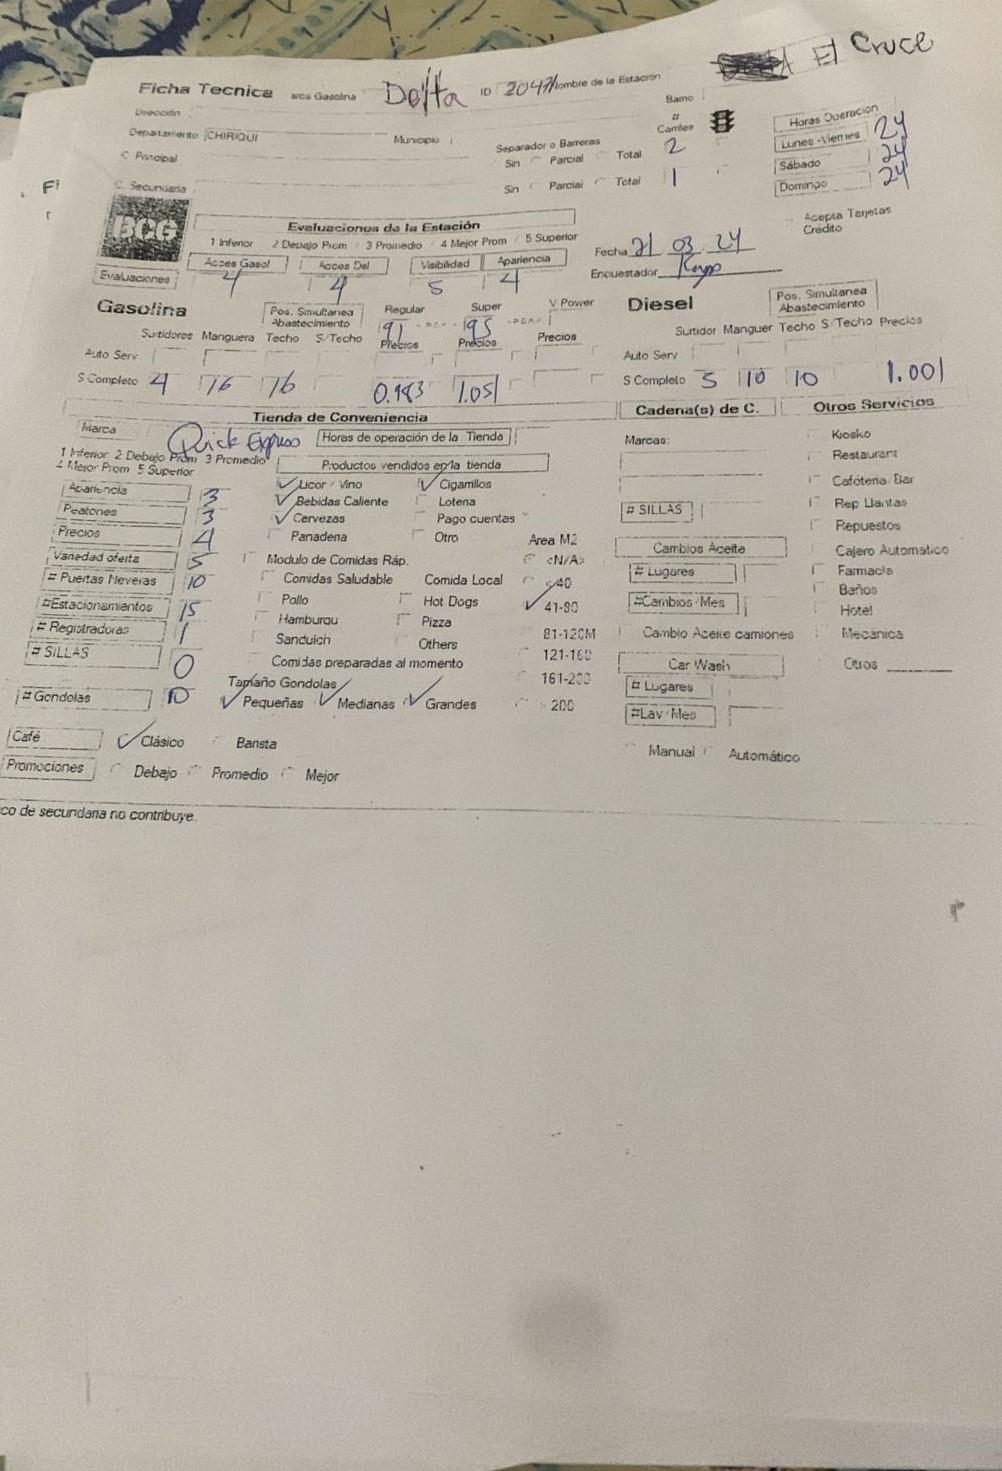 El Cruce
Ficha Tecnica arca Gasolina Delta ID 2047 Nombre de la Estación
Dirección Barrio
Departamento CHIRIQUI Municipio
C Principal Separador o Barreras # Carriles
Sin Parcial Total 2
C. Secundaria Sin Parcial Total 1
Horas Operacion
Lunes -Viernes 24
Sábado 24
Domingo 24
Acepta Tarjetas Crédito
BCG
Evaluaciones de la Estación
1 Inferior 2 Debajo Prom 3 Promedio 4 Mejor Prom 5 Superior
Acces Gasol Acces Dsl Visibilidad Apariencia
Evaluaciones 4 4 5 4
Fecha 21 03 24
Encuestador
Gasolina Pos. Simultanea Abastecimiento Regular Super V Power
91 95
Surtidores Manguera Techo S/Techo Precios Precios Precios
Auto Serv
S Completo 4 16 16 0.983 1.051
Diesel Pos. Simultanea Abastecimiento
Surtidor Manguer Techo S/Techo Precios
Auto Serv
S Completo 5 10 10 1.001
Tienda de Conveniencia
Marca Quick Express Horas de operación de la Tienda
1 Inferior 2 Debajo Prom 3 Promedio
4 Mejor Prom 5 Superior
Productos vendidos en la tienda
Apariencia 3
Peatones 3
Precios 4
Variedad oferta 5
# Puertas Neveras 10
#Estacionamientos 15
# Registradoras 1
# SILLAS 0
# Gondolas 10
Licor / Vino Cigarrillos
Bebidas Caliente Loteria
Cervezas Pago cuentas
Panaderia Otro
Modulo de Comidas Ráp.
Comidas Saludable Comida Local
Pollo Hot Dogs
Hamburgu Pizza
Sanduich Others
Comidas preparadas al momento
Tamaño Gondolas
Pequeñas Medianas Grandes
Area M2
<N/A>
<40
41-80
81-120M
121-160
161-200
> 200
Café Clásico Barista
Promociones Debajo Promedio Mejor
Cadena(s) de C.
Marcas:
# SILLAS
Cambios Aceite
# Lugares
#Cambios/Mes
Cambio Aceite camiones
Car Wash
# Lugares
#Lav/Mes
Manual Automático
Otros Servicios
Kiosko
Restaurant
Cafeteria/Bar
Rep Llantas
Repuestos
Cajero Automatico
Farmacia
Baños
Hotel
Mecanica
Otros
co de secundaria no contribuye.